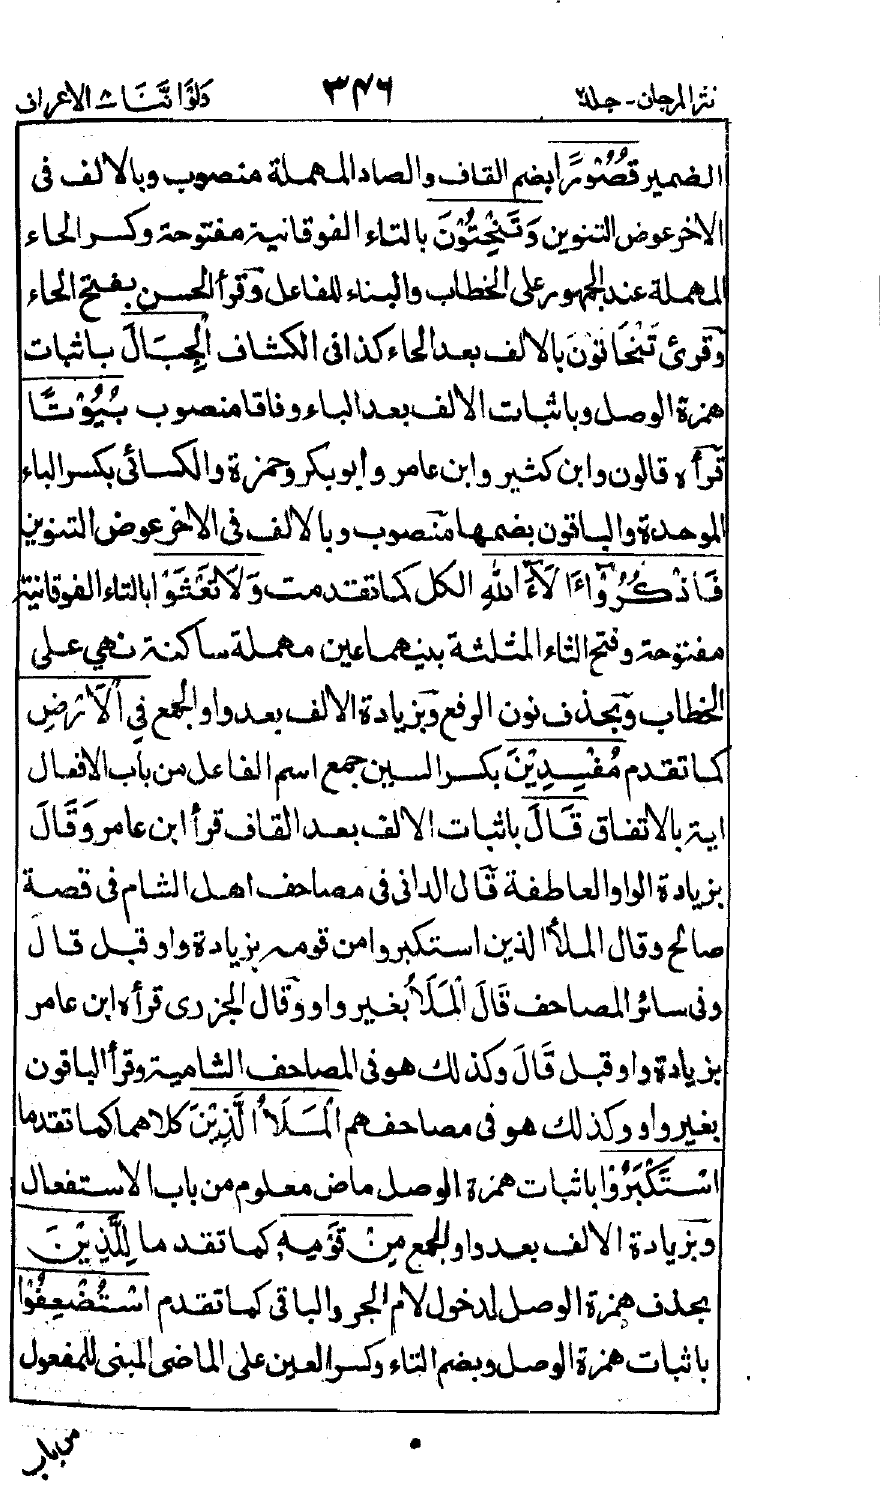 نثر المرجان - جلد٢ ٣٤٦ ولو اننا ٨ الاعراف
الضمير قُصُوْرًا بضم القاف والصاد المهملة منصوب وبالالف فى
الاخر عوض التنوين وَتَنْحِتُوْنَ بالتاء الفوقانية مفتوحة وكسر الحاء
المهملة عند الجمهور على الخطاب والبناء للفاعل وقرأ الحسن بفتح الحاء
وقرئ تَنْحَاتُوْنَ بالالف بعد الحاء كذا فى الكشاف الْجِبَالَ باثبات
همزة الوصل وباثبات الالف بعد الباء وفاقا منصوب بُيُوْتًا
قرأه قالون وابن كثير وابن عامر وابو بكر وحمزة والكسائى بكسر الباء
الموحدة والباقون بضمها منصوب وبالالف فى الاخر عوض التنوين
فَاذْكُرُوْٓا ءَا لَآءَ اللهِ الكل كما تقدمت وَلَا تَعْثَوْا بالتاء الفوقانية
مفتوحة وفتح الثاء المثلثة بينهما عين مهملة ساكنة نهي على
الخطاب وبحذف نون الرفع وبزيادة الالف بعد واو الجمع فِى الْاَرْضِ
كما تقدم مُفْسِدِيْنَ بكسر السين جمع اسم الفاعل من باب الافعال
اية بالاتفاق قَالَ باثبات الالف بعد القاف قرأ ابن عامر وَقَالَ
بزيادة الواو العاطفة قال الدانى فى مصاحف اهل الشام فى قصة
صالح وقال الملأ الذين استكبروا من قومه بزيادة واو قبل قال
وفى سائر المصاحف قَالَ الْمَلَأُ بغير واو وقال الجزرى قرأه ابن عامر
بزيادة واو قبل قَالَ وكذلك هو فى المصاحف الشامية وقرأ الباقون
بغير واو وكذلك هو فى مصاحفهم الْمَلَاُ الَّذِيْنَ كلاهما كما تقدما
اسْتَكْبَرُوْا باثبات همزة الوصل ماض معلوم من باب الاستفعال
وبزيادة الالف بعد واو الجمع مِنْ قَوْمِهٖ كما تقدما لِلَّذِيْنَ
بحذف همزة الوصل لدخول لام الجر والباقى كما تقدم اسْتُضْعِفُوْا
باثبات همزة الوصل وبضم التاء وكسر العين على الماضى المبنى للمفعول
من باب